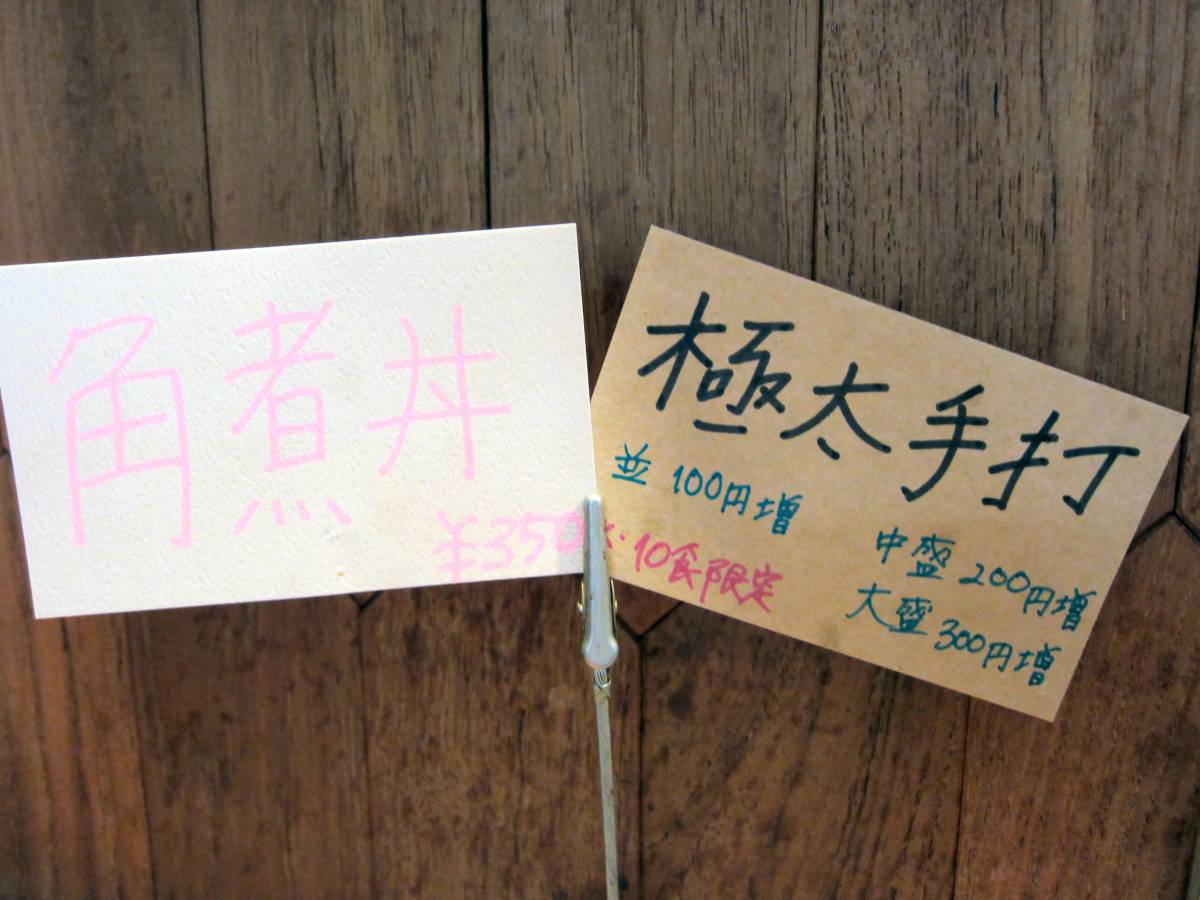 角煮丼
¥350
極太手打
並 100円増
中盛 200円増
大盛 300円増
10食限定